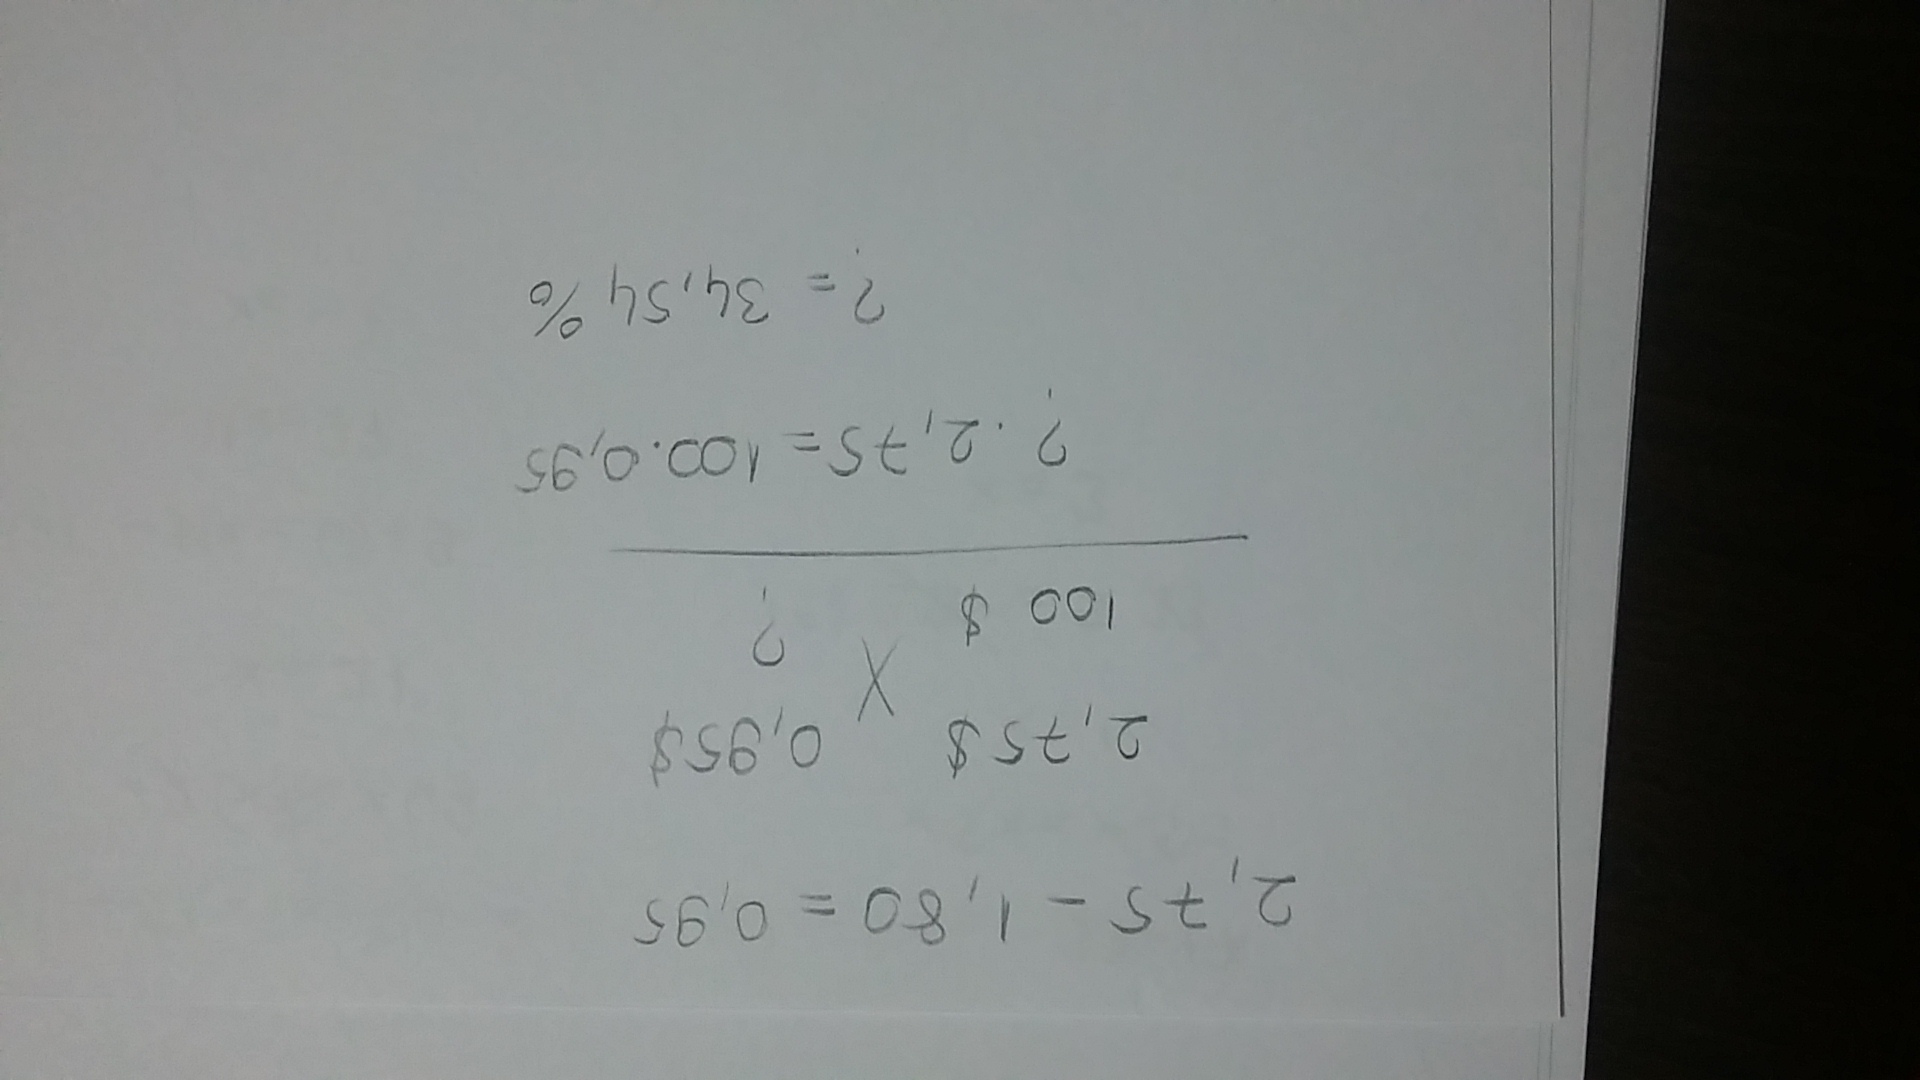 2,75 - 1,80 = 0,95
2,75 $ 0,95 $
X
100 $ ?
? . 2,75 = 100 . 0,95
? = 34,54 %